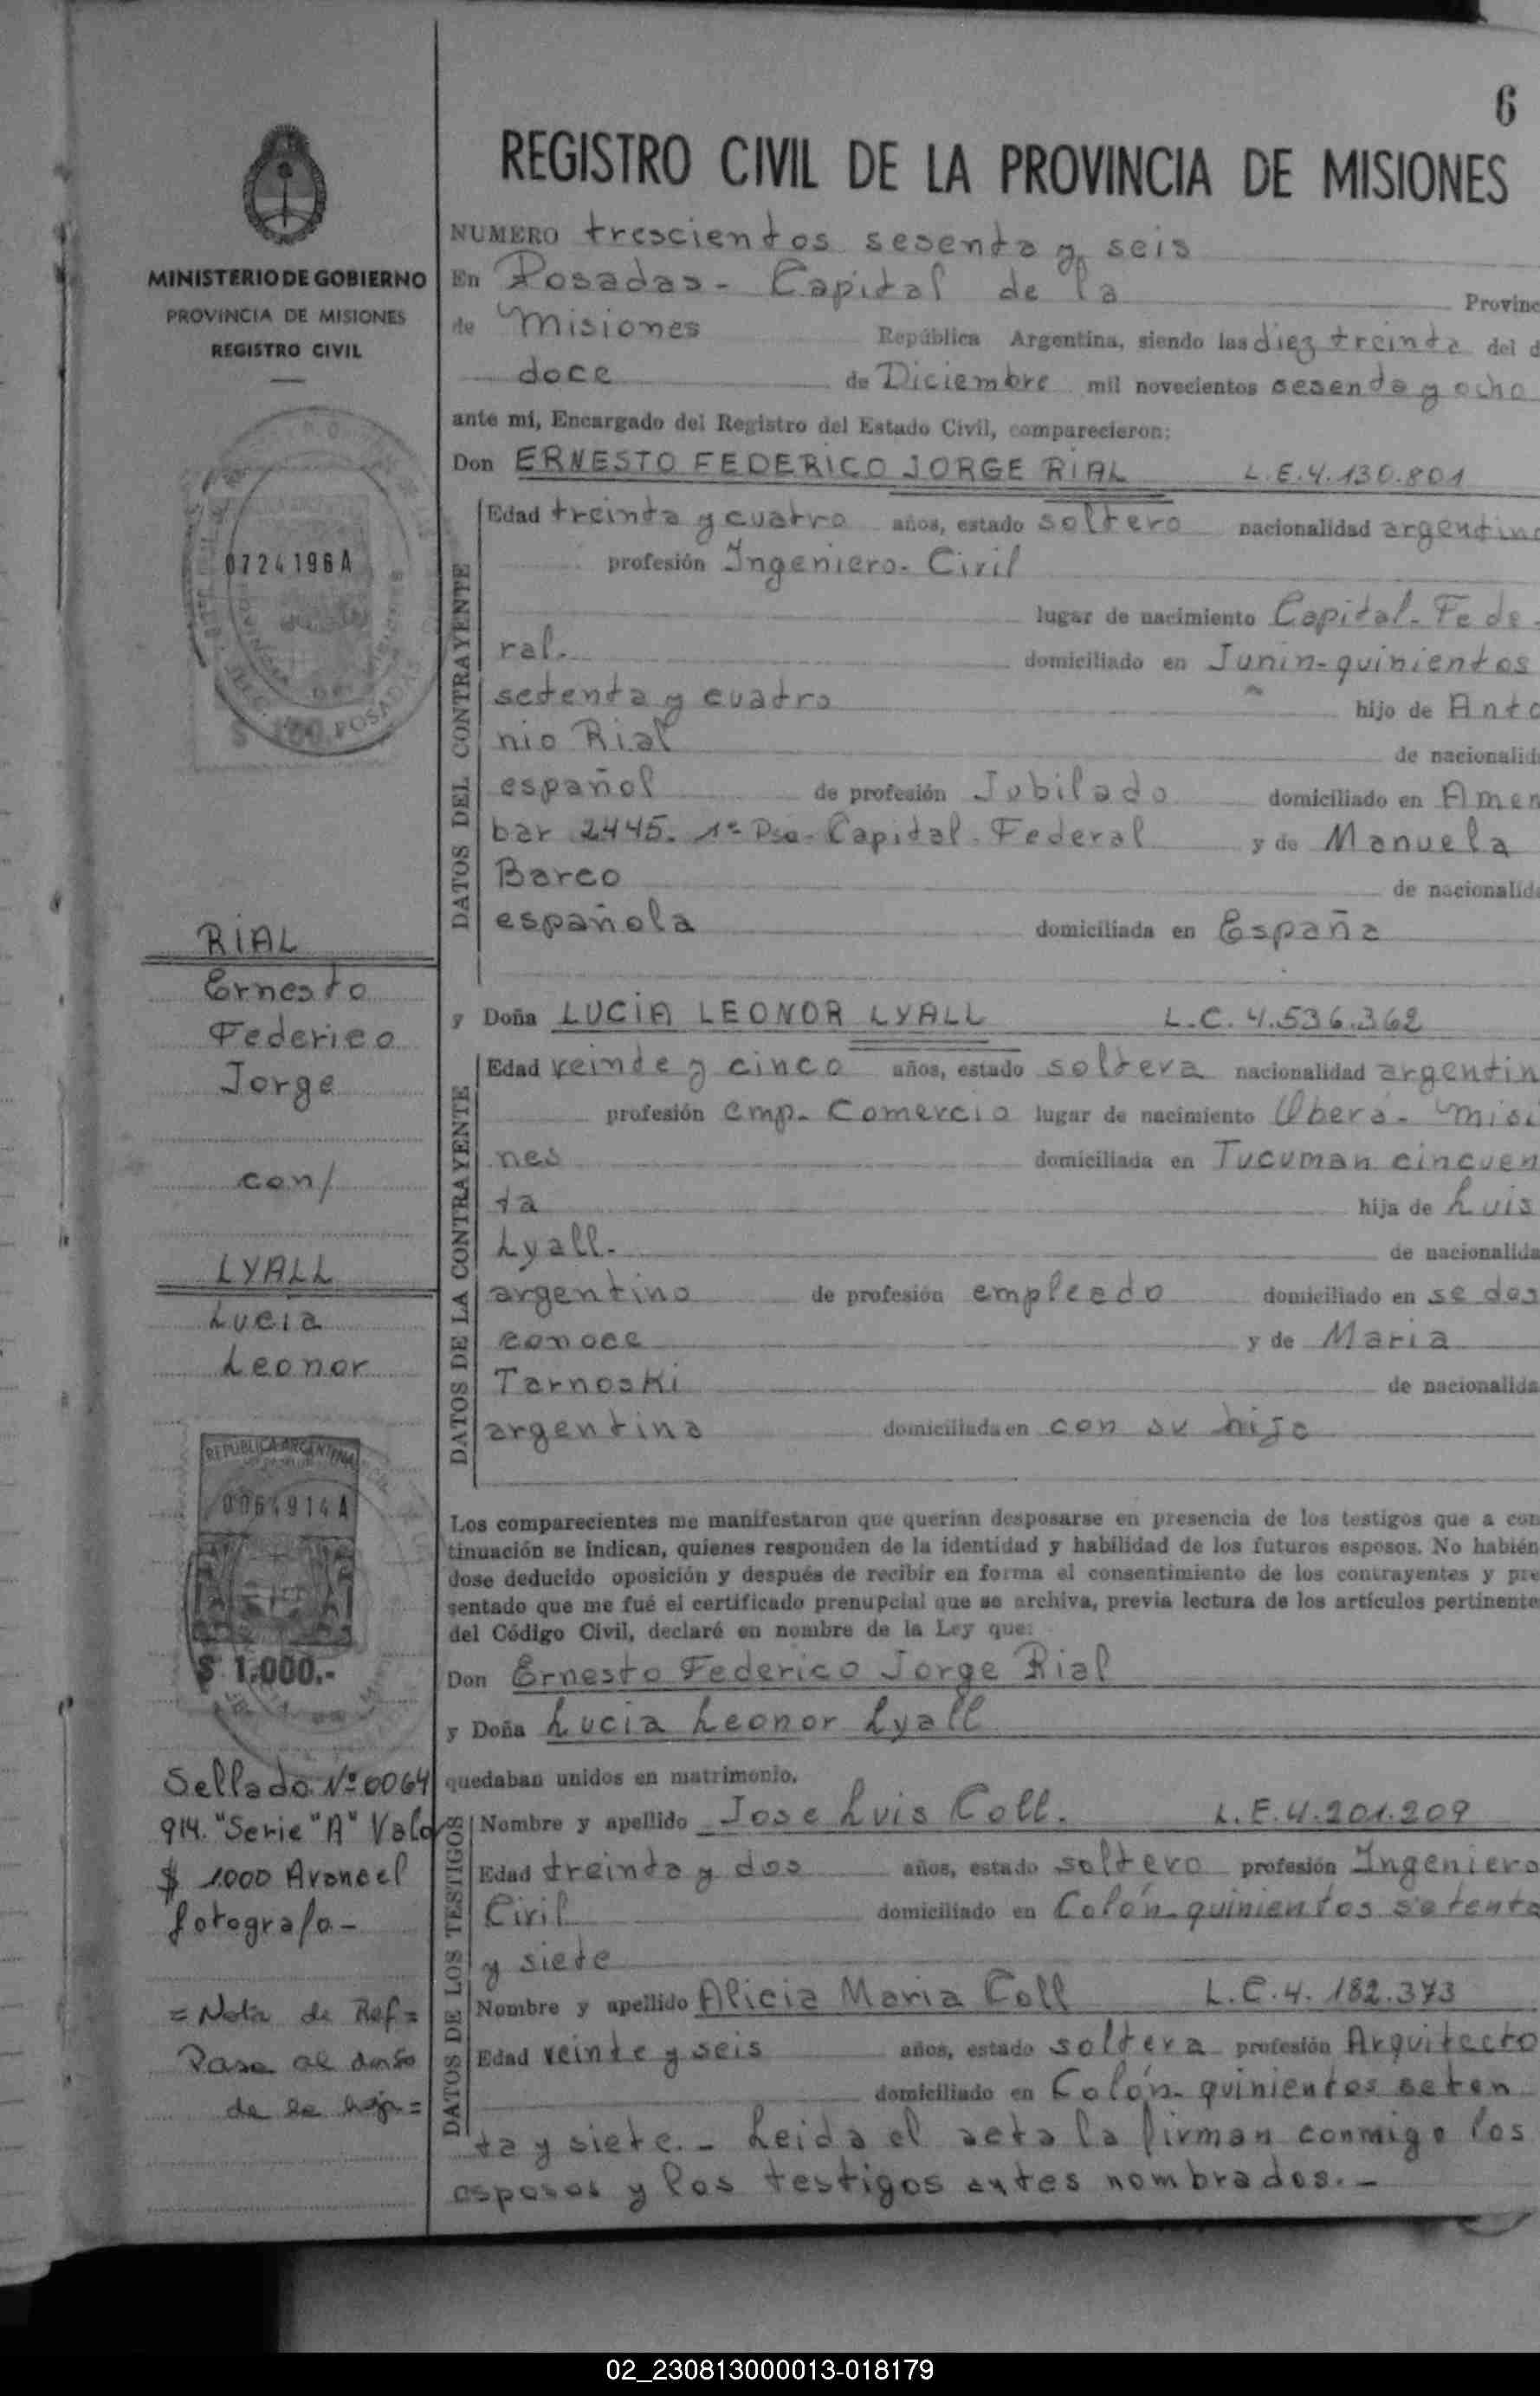 6
REGISTRO CIVIL DE LA PROVINCIA DE MISIONES
MINISTERIO DE GOBIERNO
PROVINCIA DE MISIONES
REGISTRO CIVIL
0724196A
POSADAS
RIAL
Ernesto
Federico
Jorge
con/
LYALL
Lucia
Leonor
REPUBLICA ARGENTINA
0064914A
$ 1.000.-
Sellado Nº 0064
914. "Serie "A" Valo
$ 1000 Arancel
fotografo-
= Nota de Ref =
Pasa al dorso
de la hoja =
NUMERO trescientos sesenta y seis
En Posadas - Capital de la Provinc
de Misiones República Argentina, siendo las diez treinta del d
doce de Diciembre mil novecientos sesenta y ocho
ante mi, Encargado del Registro del Estado Civil, comparecieron:
Don ERNESTO FEDERICO JORGE RIAL L.E.4.130.801
DATOS DEL CONTRAYENTE
Edad treinta y cuatro años, estado soltero nacionalidad argentino
profesión Ingeniero - Civil
lugar de nacimiento Capital - Fede-
ral. domiciliado en Junin - quinientos
setenta y cuatro hijo de Anto
nio Rial de nacionalid
español de profesión Jubilado domiciliado en Amen
bar 2445. 1º Pso - Capital - Federal y de Manuela
Barco de nacionalid
española domiciliada en España
y Doña LUCIA LEONOR LYALL L.C. 4.536.362
DATOS DE LA CONTRAYENTE
Edad veinte y cinco años, estado soltera nacionalidad argentin
profesión emp. Comercio lugar de nacimiento Oberá - Misi
nes domiciliada en Tucuman cincuen
ta hija de Luis
Lyall. de nacionalida
argentino de profesión empleado domiciliado en se des
conoce y de Maria
Tarnoski de nacionalida
argentina domiciliada en con su hija
Los comparecientes me manifestaron que querían desposarse en presencia de los testigos que a con
tinuación se indican, quienes responden de la identidad y habilidad de los futuros esposos. No habién
dose deducido oposición y después de recibir en forma el consentimiento de los contrayentes y pre
sentado que me fué el certificado prenupcial que se archiva, previa lectura de los artículos pertinente
del Código Civil, declaré en nombre de la Ley que:
Don Ernesto Federico Jorge Rial
y Doña Lucia Leonor Lyall
quedaban unidos en matrimonio.
DATOS DE LOS TESTIGOS
Nombre y apellido Jose Luis Coll. L.E.4.201.209
Edad treinta y dos años, estado soltero profesión Ingeniero
Civil domiciliado en Colón quinientos setenta
y siete
Nombre y apellido Alicia Maria Coll L.C.4.182.373
Edad veinte y seis años, estado soltera profesión Arquitecto
domiciliado en Colón - quinientos seten
ta y siete.- Leida el acta la firman conmigo los
esposos y los testigos antes nombrados.-
02_230813000013-018179